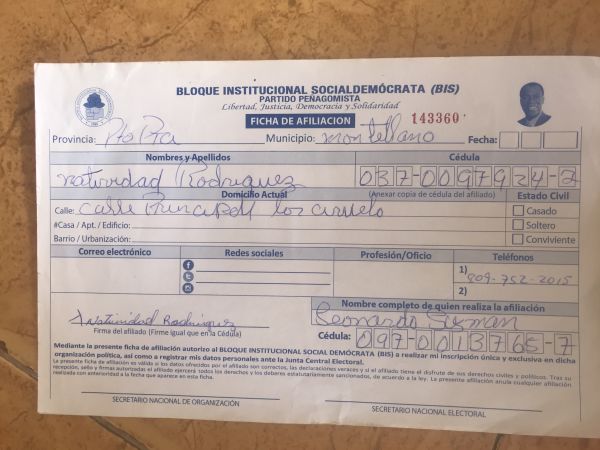 BLOQUE INSTITUCIONAL SOCIALDEMÓCRATA (BIS)
PARTIDO PEÑAGOMISTA
Libertad, Justicia, Democracia y Solidaridad
FICHA DE AFILIACIÓN 143360
Provincia: Pto Pta Municipio: montellano Fecha:
Nombres y Apellidos Cédula
natividad Rodriguez 037-0097924-2
Domicilio Actual (Anexar copia de cédula del afiliado) Estado Civil
Calle: calle Principal los ciruelo Casado
#Casa / Apt. / Edificio: Soltero
Barrio / Urbanización: Conviviente
Correo electrónico Redes sociales Profesión/Oficio Teléfonos
1) 809-752-2015
2)
Nombre completo de quien realiza la afiliación
Natividad Rodriguez Leonardo
Firma del afiliado (Firme igual que en la Cédula) Cédula: 097-0013768-7
Mediante la presente ficha de afiliación autorizo al BLOQUE INSTITUCIONAL SOCIAL DEMÓCRATA (BIS) a realizar mi inscripción única y exclusiva en dicha
organización política, así como a registrar mis datos personales ante la Junta Central Electoral.
La presente ficha de afiliación es válida si los datos ofrecidos por el afiliado son correctos, las declaraciones veraces y si el afiliado tiene el disfrute de sus derechos civiles y políticos. Tras su
recepción, sello y firmas autorizadas el afiliado ejercerá todos los derechos y los deberes estatutariamente sancionados, de acuerdo a la ley. La presente afiliación anula cualquier afiliación
realizada con anterioridad a la fecha que aparece en esta ficha.
SECRETARIO NACIONAL DE ORGANIZACIÓN SECRETARIO NACIONAL ELECTORAL